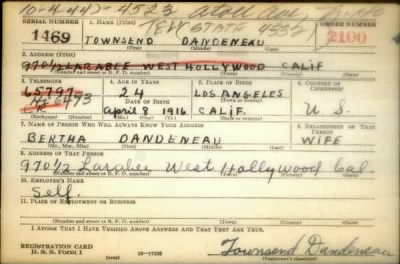 10-4-44?- 4523
NEW STATE 4532
SERIAL NUMBER
1. NAME (Print)
ORDER NUMBER
1469
TOWNSEND DANDENEAU
2100
(First) (Middle) (Last)
2. ADDRESS (Print)
970½ LARABEE WEST HOLLYWOOD CALIF
(Number and street or R. F. D. number) (Town) (County) (State)
3. TELEPHONE
4. AGE IN YEARS
5. PLACE OF BIRTH
6. COUNTRY OF CITIZENSHIP
65797
24
LOS ANGELES
DATE OF BIRTH
(Town or county)
April 8 1916
CALIF.
U.S.
(Mo.) (Day) (Yr.)
(State or country)
7. NAME OF PERSON WHO WILL ALWAYS KNOW YOUR ADDRESS
8. RELATIONSHIP OF THAT PERSON
BERTHA DANDENEAU
WIFE
(Mr., Mrs., Miss) (First) (Middle) (Last)
9. ADDRESS OF THAT PERSON
970½ Larabee West Hollywood Cal.
(Number and street or R. F. D. number) (Town) (County) (State)
10. EMPLOYER'S NAME
Self.
11. PLACE OF EMPLOYMENT OR BUSINESS
(Number and street or R. F. D. number) (Town) (County) (State)
I AFFIRM THAT I HAVE VERIFIED ABOVE ANSWERS AND THAT THEY ARE TRUE.
REGISTRATION CARD
D. S. S. Form 1
16-17105
Townsend Dandeneau
(Registrant's signature)